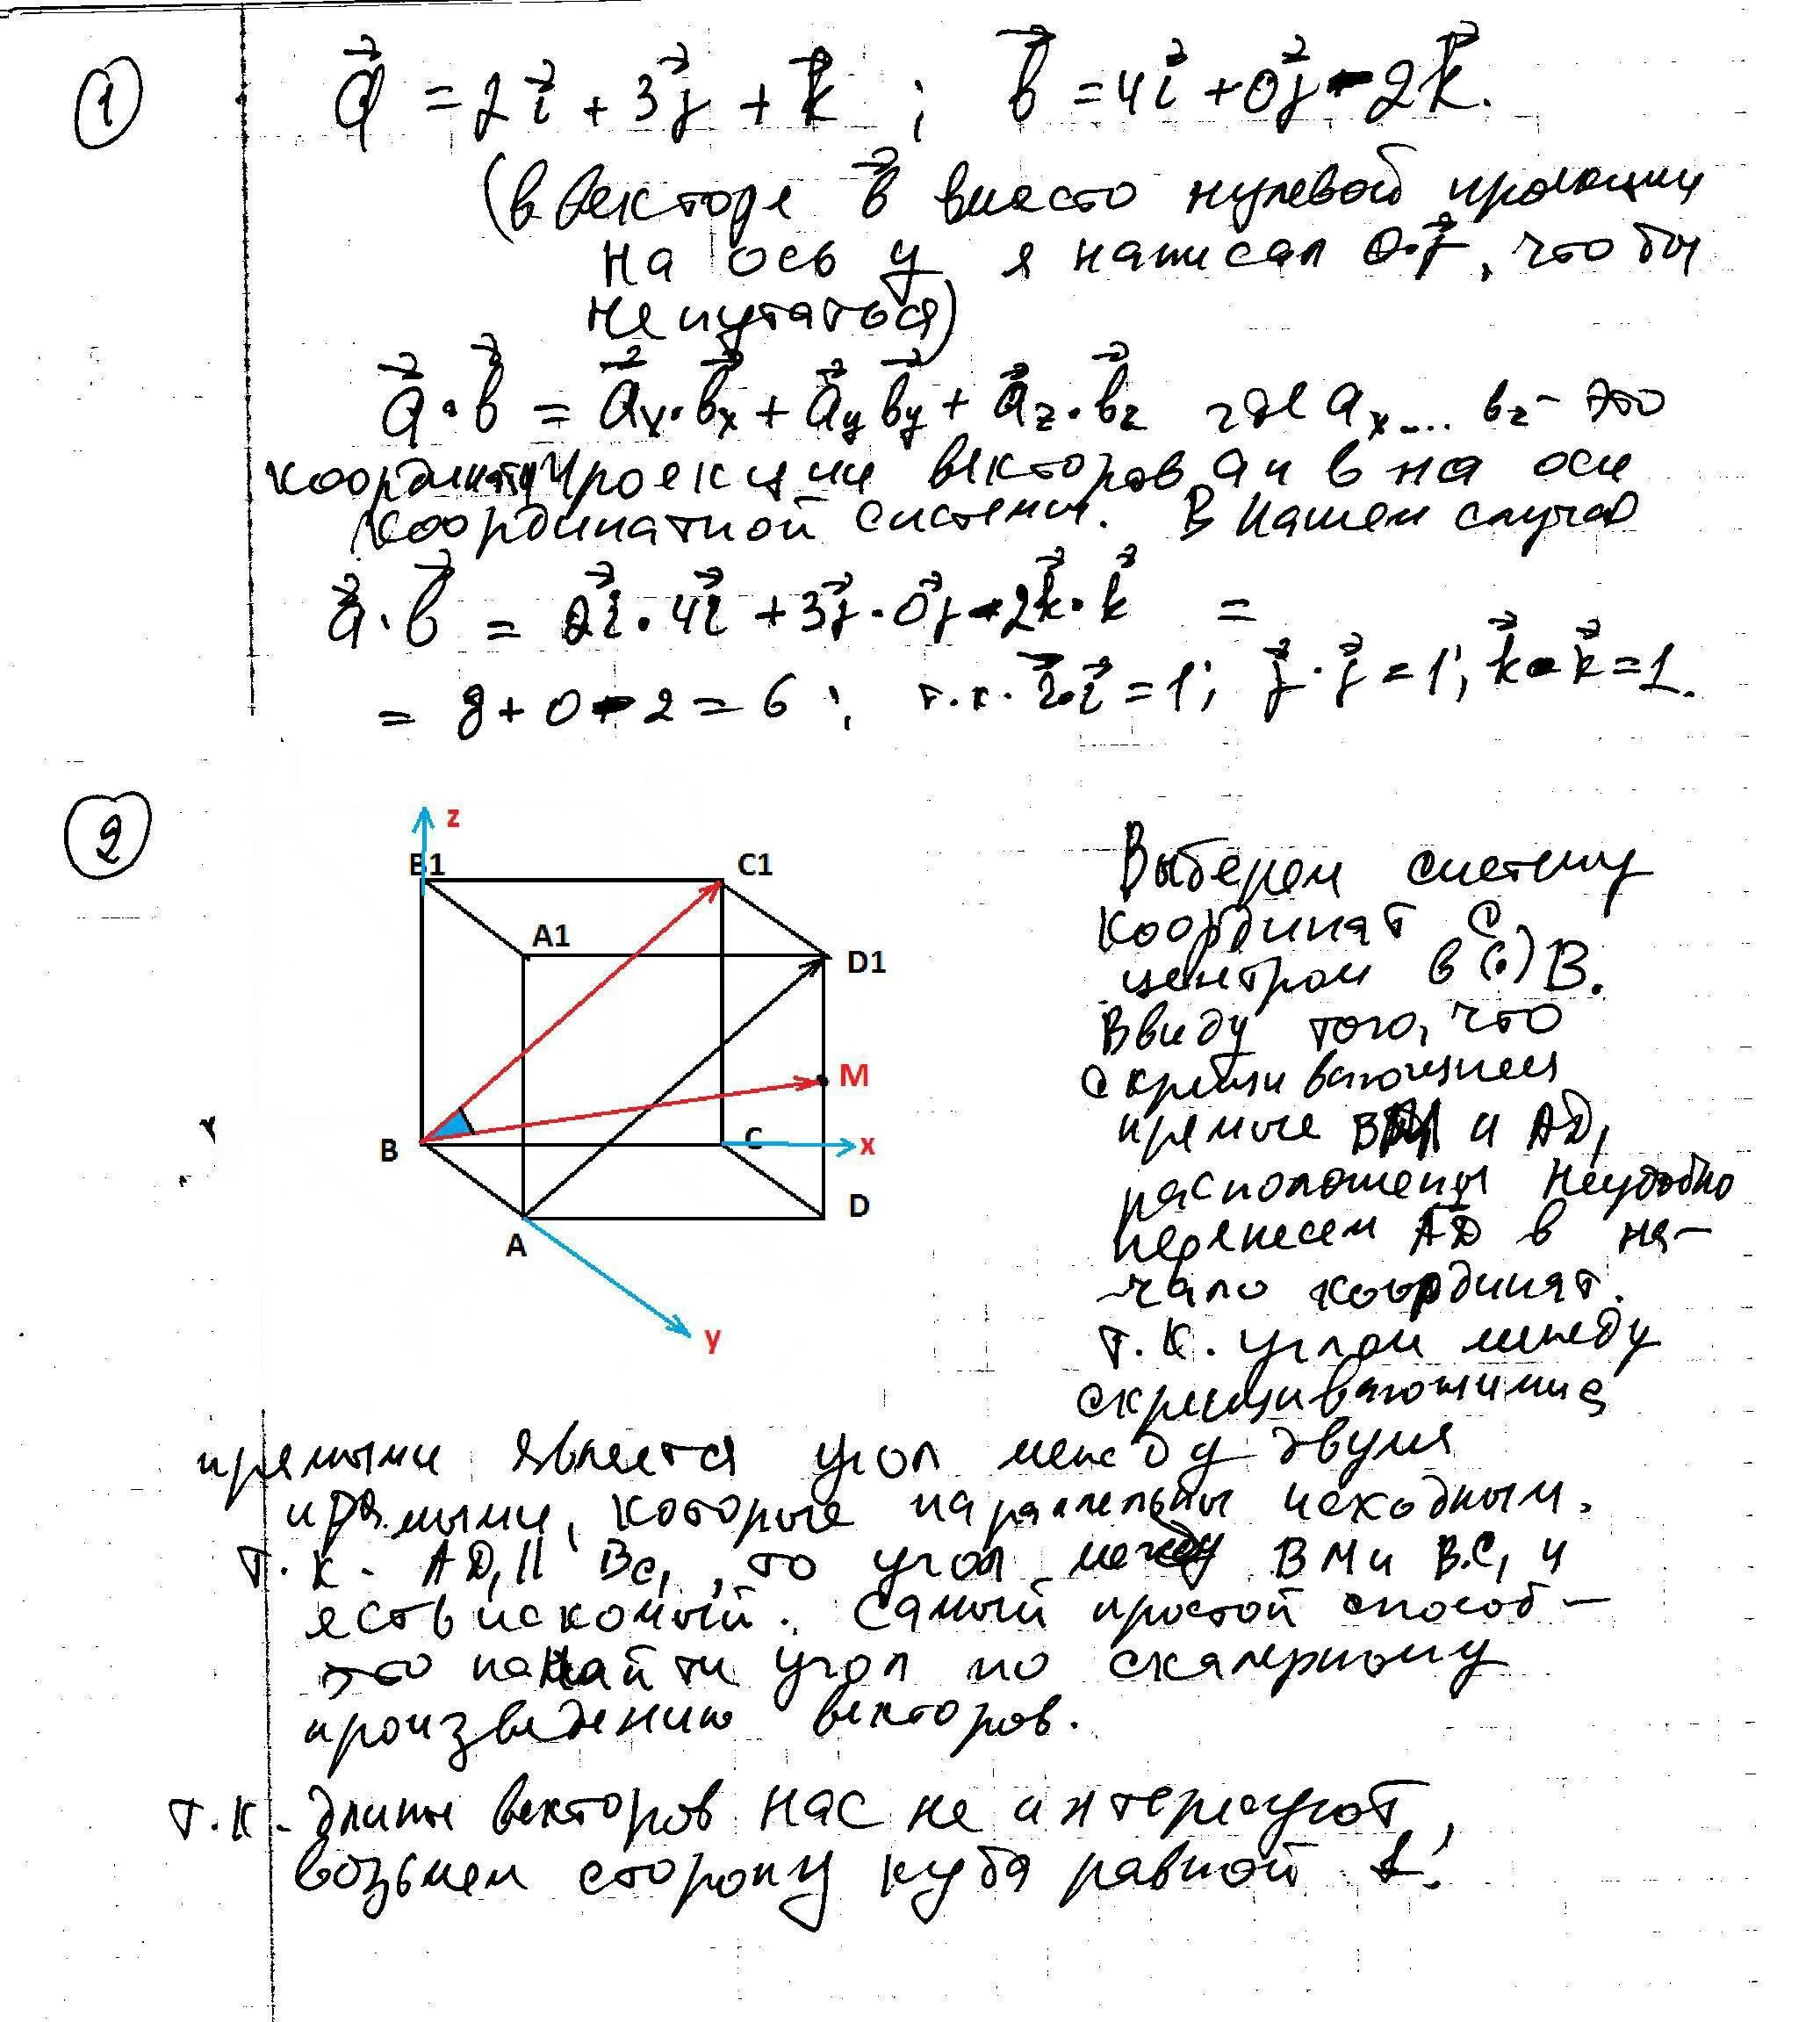 ① a⃗ = 2i⃗ + 3j⃗ + k⃗ ; b⃗ = 4i⃗ + 0j⃗ - 2k⃗.
(в векторе b⃗ вместо нулевой проекции
на ось y я написал 0·j⃗, чтобы
не путаться)
a⃗·b⃗ = a⃗x·b⃗x + a⃗y b⃗y + a⃗z·b⃗z где ax... bz - это
координаты проекции векторов a и b на оси
координатной системы. В нашем случае
a⃗·b⃗ = 2i⃗·4i⃗ + 3j⃗·0j⃗ - 2k⃗·k⃗ =
= 8 + 0 - 2 = 6 ; т.к. i⃗·i⃗ = 1; j⃗·j⃗ = 1; k⃗·k⃗ = 1.
②
z
B1 C1
A1
D1
M
B C x
D
A
y
Выберем систему
координат с
центром в (·) B.
Ввиду того, что
скрещивающиеся
прямые BM и AD₁
расположены неудобно
перенесем AD₁ в на-
чало координат.
Т.к. углом между
скрещивающимися
прямыми является угол между двумя
прямыми, которые параллельны исходным.
Т.к. AD₁ || BC₁, то угол между BM и BC₁ и
есть искомый. Самый простой способ -
это найти угол по скалярному
произведению векторов.
Т.к. длины векторов нас не интересуют,
возьмем сторону куба равной 1.